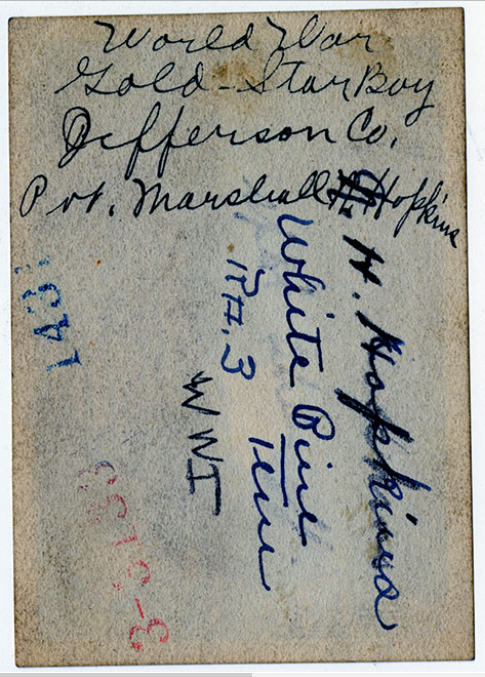 World War
Gold-Star Boy
Jefferson Co.
Pvt. Marshall H. Hopkins
H. Hopkins
White Pine
Tenn
Rt. 3
WWI
143